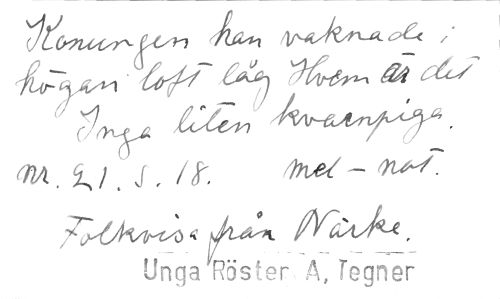 Konungen han vaknade i
högan loft låg Hvem är det
Inga liten kvarnpiga.
nr. 21. s. 18. mel - not.
Folkvisa från Närke.
Unga Röster A, Tegner